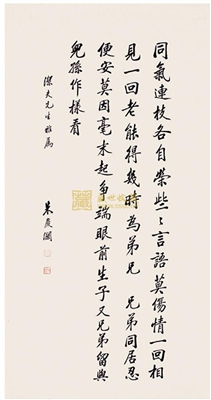 同氣連枝各自榮些々言語莫傷情一回相
見一回老能得幾時為弟兄　兄弟同居忍
便安莫因毫末起爭端眼前生子又兄弟留與
兒孫作樣看
潔夫先生雅屬